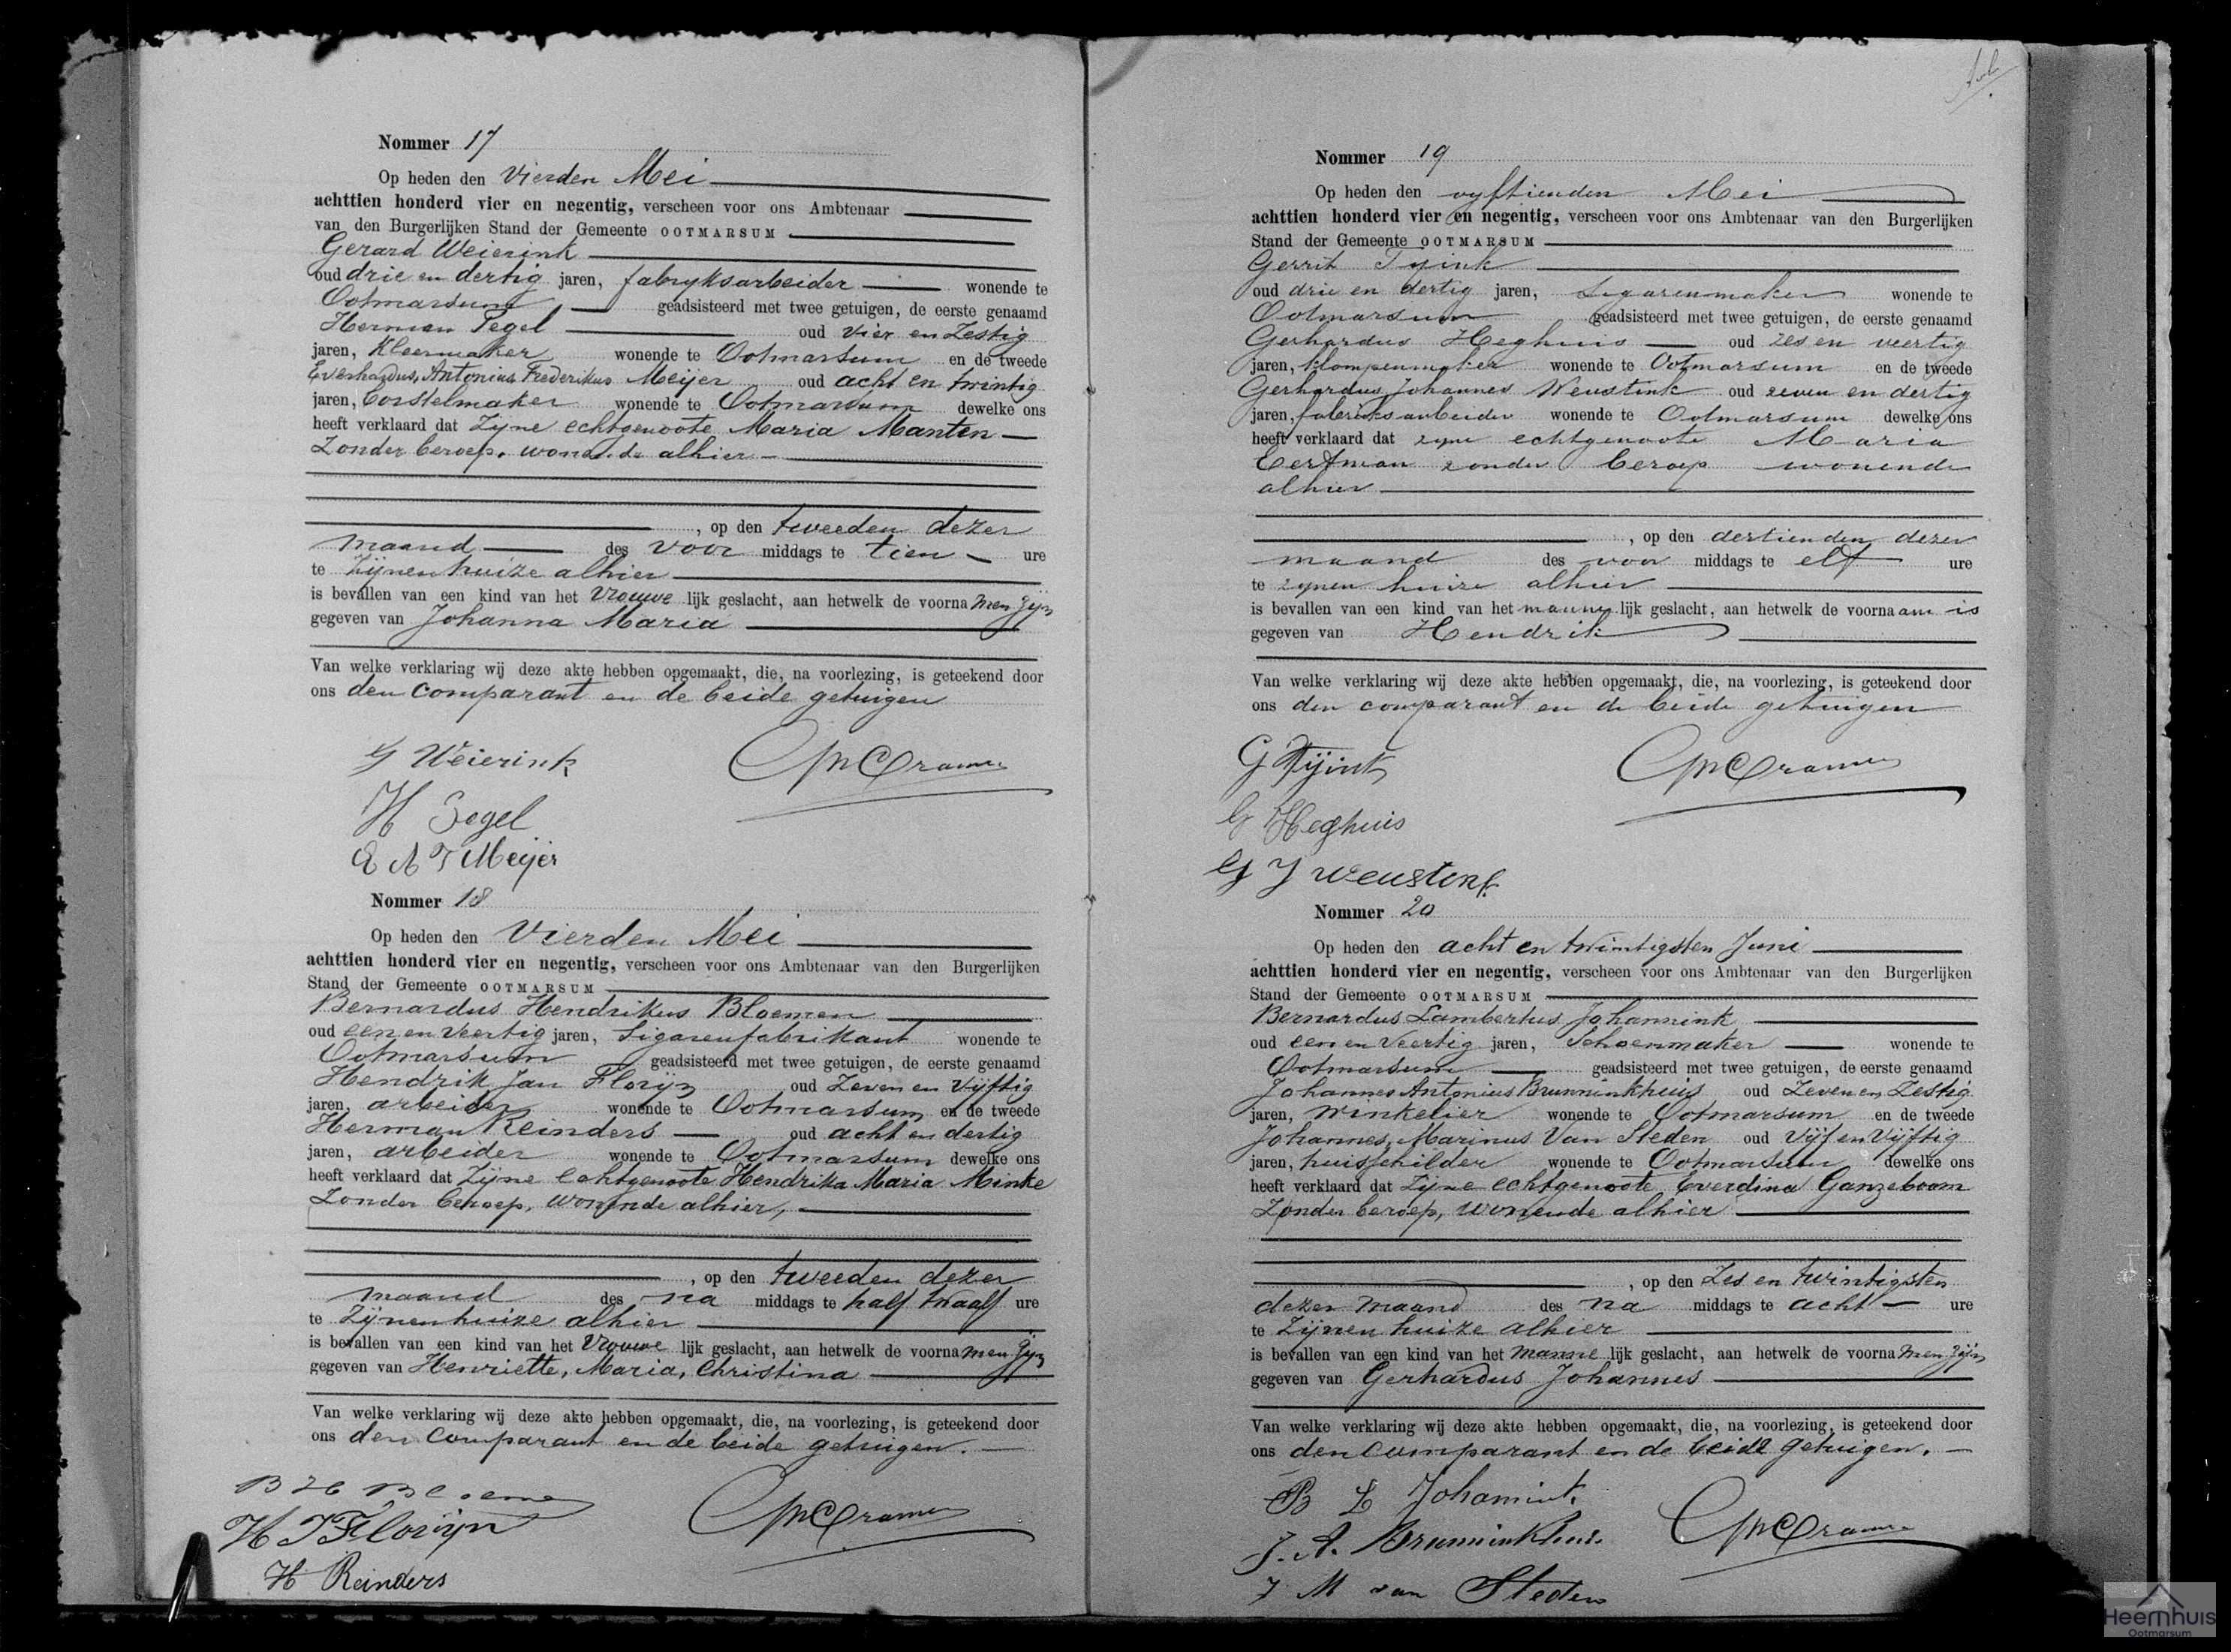 Nommer 17
Op heden den Vierden Mei
achttien honderd vier en negentig, verscheen voor ons Ambtenaar
van den Burgerlijken Stand der Gemeente OOTMARSUM
Gerard Weierink
oud drie en dertig jaren, fabryksarbeider wonende te
Ootmarsum geadsisteerd met twee getuigen, de eerste genaamd
Herman Pegel oud vier en Zestig
jaren, Kleermaker wonende te Ootmarsum en de tweede
Everhardus, Antonius Frederikus Meijer oud acht en twintig
jaren, borstelmaker wonende te Ootmarsum dewelke ons
heeft verklaard dat Zijne echtgenoote Maria Manten
Zonder beroep, wonende alhier
, op den tweeden dezer
maand des voor middags te tien ure
te Zijnen huize alhier
is bevallen van een kind van het Vrouwe lijk geslacht, aan hetwelk de voorna men Zijn
gegeven van Johanna Maria
Van welke verklaring wij deze akte hebben opgemaakt, die, na voorlezing, is geteekend door
ons den comparant en de beide getuigen
G Weierink
H Pegel
E A F Meijer
Nommer 18
Op heden den Vierden Mei
achttien honderd vier en negentig, verscheen voor ons Ambtenaar van den Burgerlijken
Stand der Gemeente OOTMARSUM
Bernardus Hendrikus Bloemen
oud een en Veertig jaren, Sigarenfabrikant wonende te
Ootmarsum geadsisteerd met twee getuigen, de eerste genaamd
Hendrik Jan Florijn oud Zeven en Vijftig
jaren, arbeider wonende te Ootmarsum en de tweede
Herman Reinders oud acht en dertig
jaren, arbeider wonende te Ootmarsum dewelke ons
heeft verklaard dat Zijne echtgenoote Hendrika Maria Minke
Zonder beroep, wonende alhier,
, op den tweeden dezer
maand des na middags te half twaalf ure
te Zijnen huize alhier
is bevallen van een kind van het Vrouwe lijk geslacht, aan hetwelk de voorna men Zijn
gegeven van Henriette, Maria, Christina
Van welke verklaring wij deze akte hebben opgemaakt, die, na voorlezing, is geteekend door
ons den comparant en de beide getuigen.
B H Bloemen
H J Florijn
H Reinders
Nommer 19
Op heden den vyftienden Mei
achttien honderd vier en negentig, verscheen voor ons Ambtenaar van den Burgerlijken
Stand der Gemeente OOTMARSUM
Gerrit Tyink
oud drie en dertig jaren, Sigarenmaker wonende te
Ootmarsum geadsisteerd met twee getuigen, de eerste genaamd
Gerhardus Heghuis oud zes en veertig
jaren, klompenmaker wonende te Ootmarsum en de tweede
Gerhardus Johannes Weustink oud zeven en dertig
jaren, fabrieksarbeider wonende te Ootmarsum dewelke ons
heeft verklaard dat zyne echtgenoote Maria
zonder beroep wonende
alhier
, op den dertienden dezer
maand des voor middags te elf ure
te zynen huize alhier
is bevallen van een kind van het manne lijk geslacht, aan hetwelk de voorna am is
gegeven van Hendrik
Van welke verklaring wij deze akte hebben opgemaakt, die, na voorlezing, is geteekend door
ons den comparant en de beide getuigen
G Tijink
G Heghuis
G J Weustink
Nommer 20
Op heden den acht en twintigsten Juni
achttien honderd vier en negentig, verscheen voor ons Ambtenaar van den Burgerlijken
Stand der Gemeente OOTMARSUM
Bernardus Lambertus Johannink
oud een en Veertig jaren, Schoenmaker wonende te
Ootmarsum geadsisteerd met twee getuigen, de eerste genaamd
Johannes Antonius Brunninkhuis oud Zeven en Zestig
jaren, Winkelier wonende te Ootmarsum en de tweede
Johannes, Marinus Van Steden oud Vijf en Vijftig
jaren, huisschilder wonende te Ootmarsum dewelke ons
heeft verklaard dat Zijne echtgenoote Everdina Ganzeboom
Zonder beroep, wonende alhier
, op den Zes en twintigsten
dezer maand des na middags te acht ure
te Zijnen huize alhier
is bevallen van een kind van het manne lijk geslacht, aan hetwelk de voorna men Zijn
gegeven van Gerhardus Johannes
Van welke verklaring wij deze akte hebben opgemaakt, die, na voorlezing, is geteekend door
ons den comparant en de beide getuigen.
B L Johannink
J. A. Brunninkhuis
J M van Steden
Heemhuis
Ootmarsum